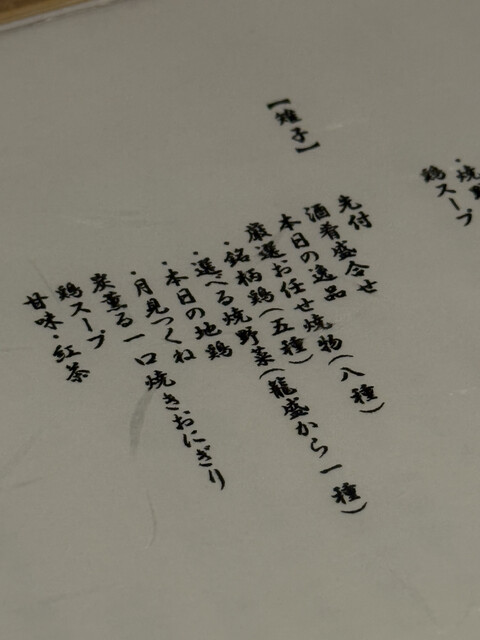 ・焼野
鶏スープ
【雉子】
先付
酒肴盛合せ
本日の逸品
厳選お任せ焼物(八種)
・銘柄鶏(五種)
・選べる焼野菜(籠盛から一種)
・本日の地鶏
・月見つくね
炭薫る一口焼きおにぎり
鶏スープ
甘味・紅茶